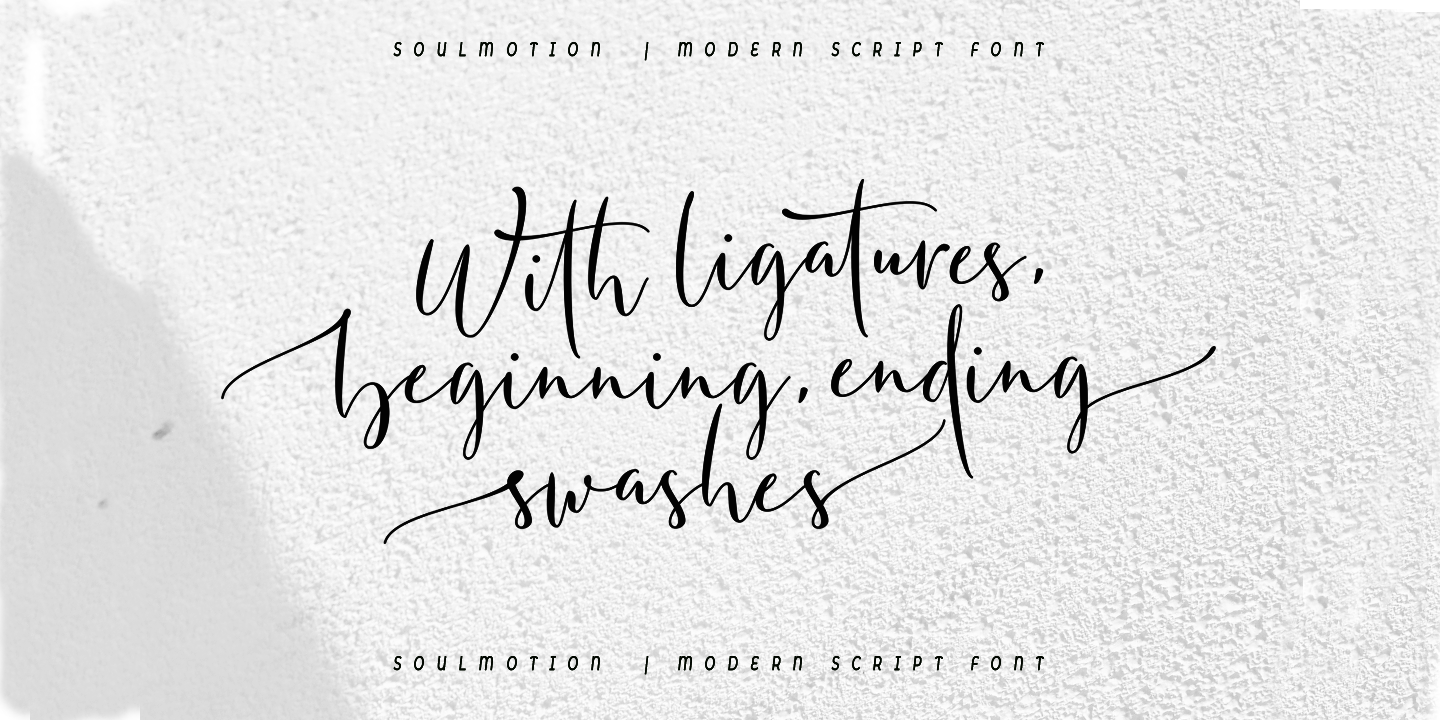 SOULMOTION | MODERN SCRIPT FONT
With ligatures,
beginning, ending
swashes
SOULMOTION | MODERN SCRIPT FONT